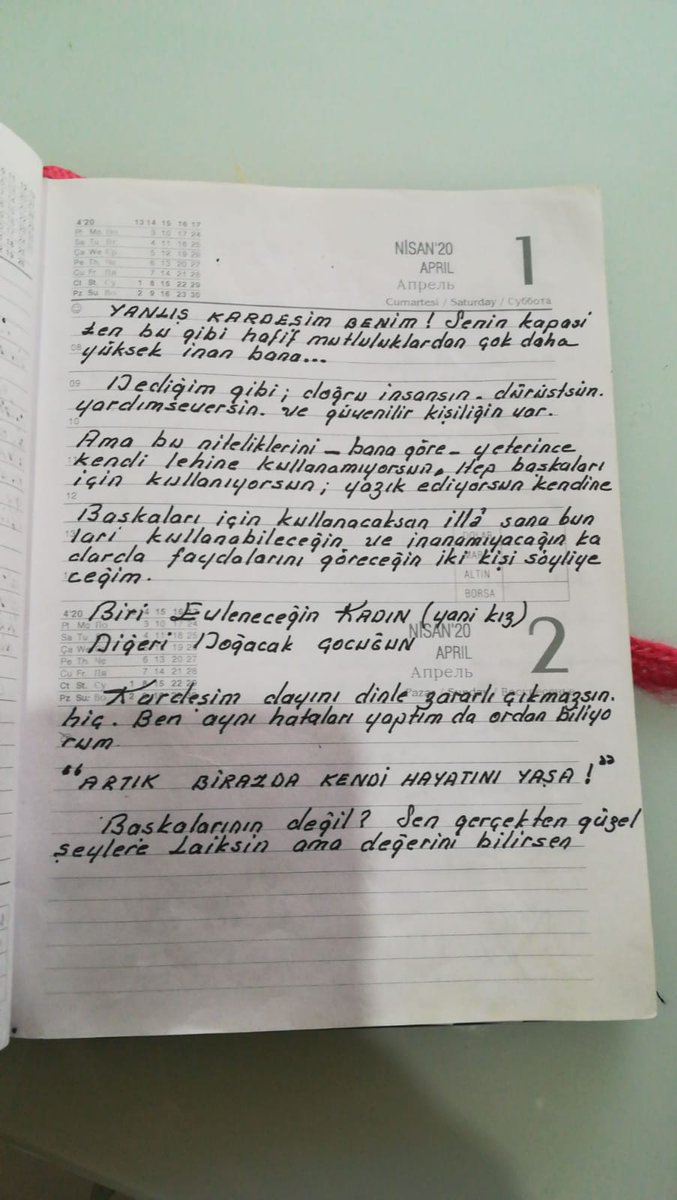 4'20 13 14 15 16 17
Pt Mo 3 10 17 24
Sa Tu 4 11 18 25
Ça We 5 12 19 26
Pe Th 6 13 20 27
Cu Fr 7 14 21 28
Ct St. Cy 1 8 15 22 29
Pz Su 2 9 16 23 30
NİSAN'20
APRIL
Апрель
1
Cumartesi / Saturday / Суббота
YANLIŞ KARDEŞİM BENİM! Senin kapasi
ten bu gibi hafif mutluluklardan çok daha
08 yüksek inan bana...
09 Dediğim gibi; doğru insansın. dürüstsün.
yardımseversin. ve güvenilir kişiliğin var.
10
Ama bu niteliklerini - bana göre - yeterince
kendi lehine kullanamıyorsun. Hep başkaları
için kullanıyorsun; yazık ediyorsun kendine
12
Başkaları için kullanacaksan illâ sana bun
ları kullanabileceğin ve inanamıyacağın ka
darda faydalarını göreceğin iki kişi söyliye
ceğim.
ALTIN
BORSA
Biri Evleneceğin KADIN (yani kız)
Diğeri Doğacak ÇOCUĞUN
4'20
NİSAN'20
APRIL
Апрель
2
Kardeşim dayını dinle zararlı çıkmazsın.
hiç. Ben aynı hataları yaptım da ordan biliyo
rum
"ARTIK BİRAZDA KENDİ HAYATINI YAŞA!"
Başkalarının değil? Sen gerçekten güzel
şeylere Laiksin ama değerini bilirsen